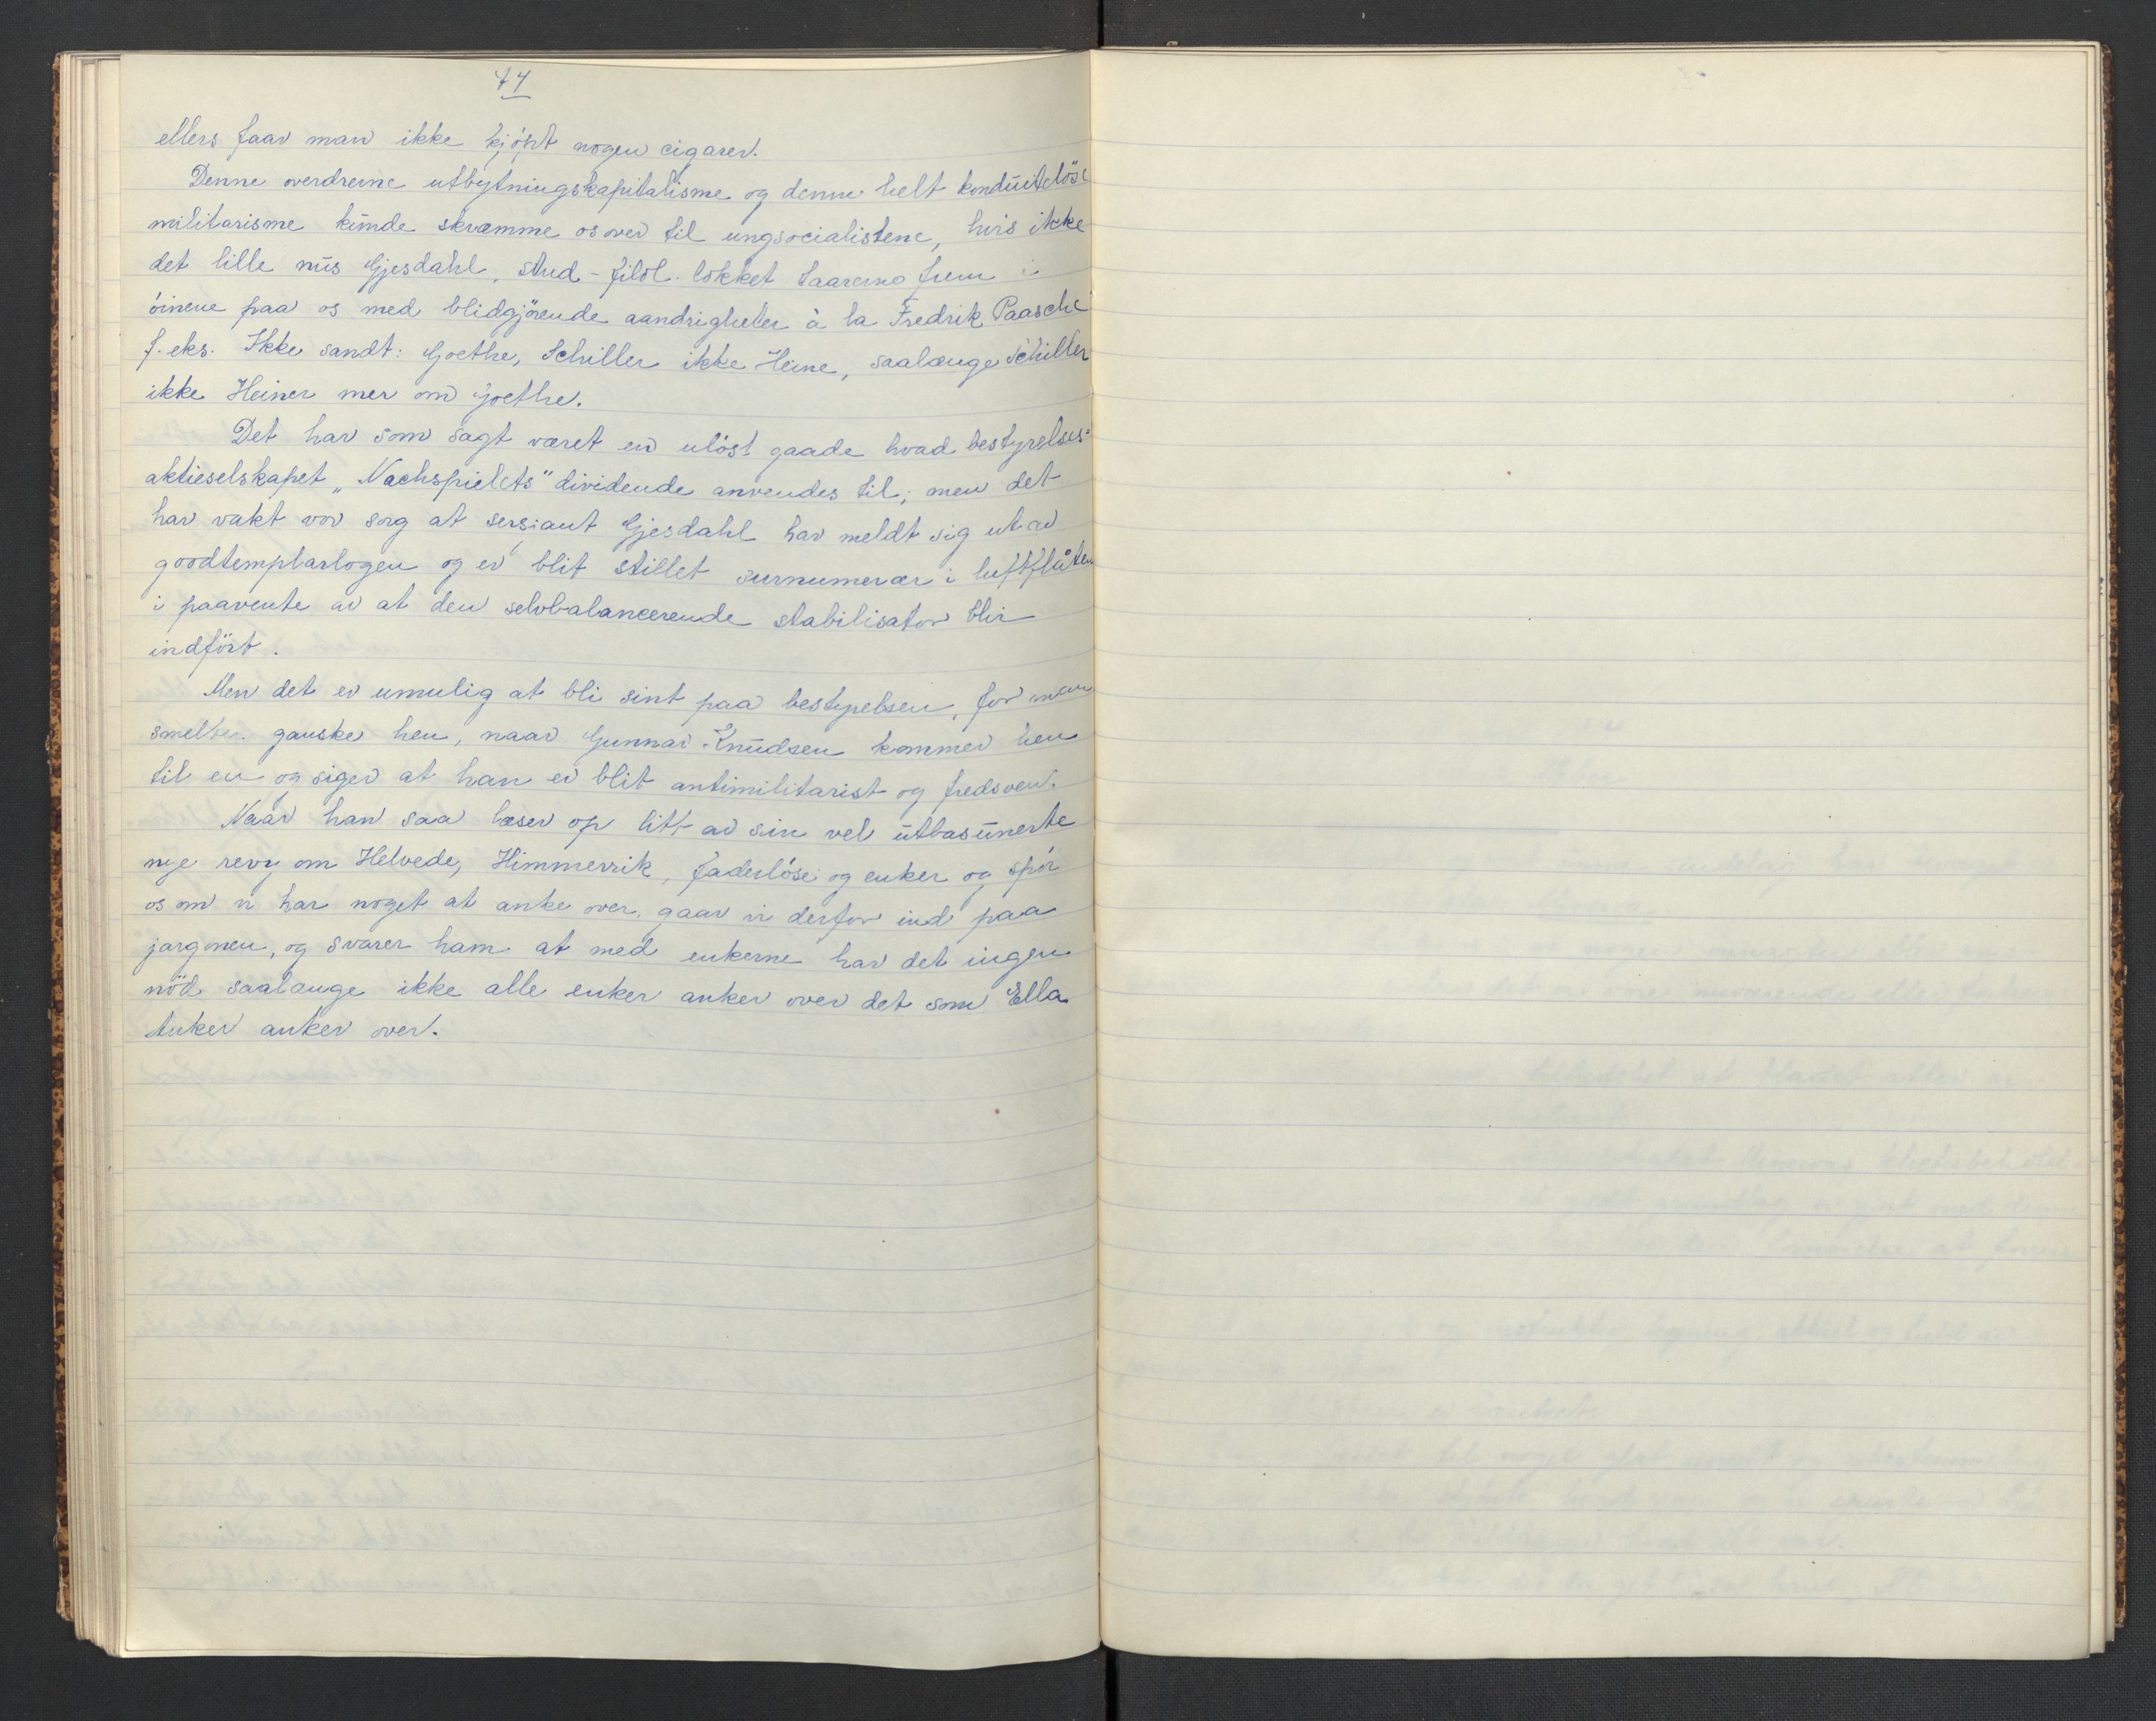 44
ellers faar man ikke kjöpt nogen cigarer.
Denne overdrevne utbytningskapitalisme og denne helt konduitelöse
militarisme kunde skræmme os over til ungsocialistene, hvis ikke
det lille nus Gjesdahl, stud-filol. lokket taarerne frem i
öinene paa os med blidgjörende aandrigheter à la Fredrik Paasche
f. eks. Ikke sandt: Goethe, Schiller ikke Heine, saalænge Schiller
ikke Heiner mer om Goethe.
Det har som sagt været en ulöst gaade hvad bestyrelses=
aktieselskapet „Nachspielets" dividende anvendes til; men det
har vakt vor sorg at sersjant Gjesdahl har meldt sig ut av
goodtemplarlogen og er blit stillet surnumerær i luftflåten
i paavente av at den selvbalancerende stabilisator blir
indfört.
Men det er umulig at bli sint paa bestyrelsen, for man
smelter ganske hen, naar Gunnar Knudsen kommer hen
til en og siger at han er blit antimilitarist og fredsven.
Naar han saa læser op litt av sin vel utbasunerte
nye revy om Helvede, Himmerrik, faderlöse og enker og spör
os om vi har noget at anke over, gaar vi derfor ind paa
jargonen, og svarer ham at med enkerne har det ingen
nöd saalænge ikke alle enker anker over det som Ella
Anker anker over.